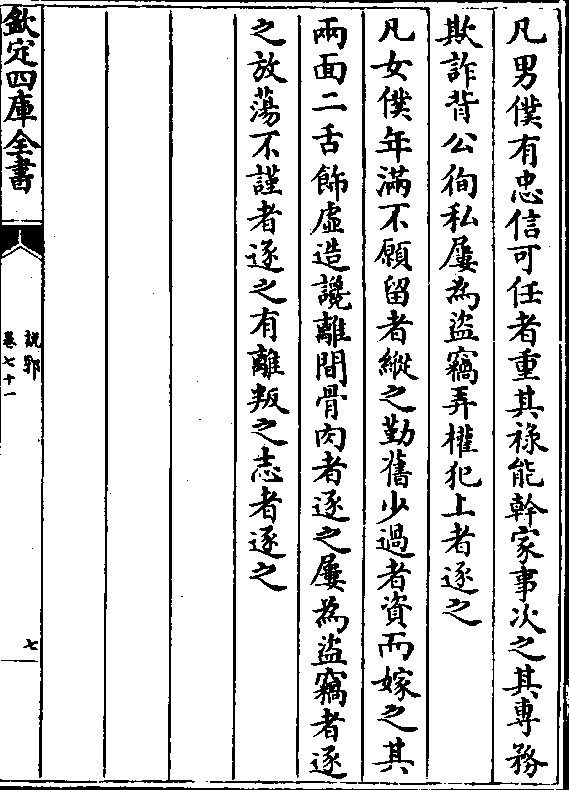 凡男僕有忠信可任者重其祿能幹家事次之其專務
欺詐背公徇私屢為盜竊弄權犯上者逐之
凡女僕年滿不願留者縱之勤舊少過者資而嫁之其
兩面二舌飾虛造讒離間骨肉者逐之屢為盜竊者逐
之放蕩不謹者逐之有離叛之志者逐之
欽定四庫全書
說郛
卷七十一
七